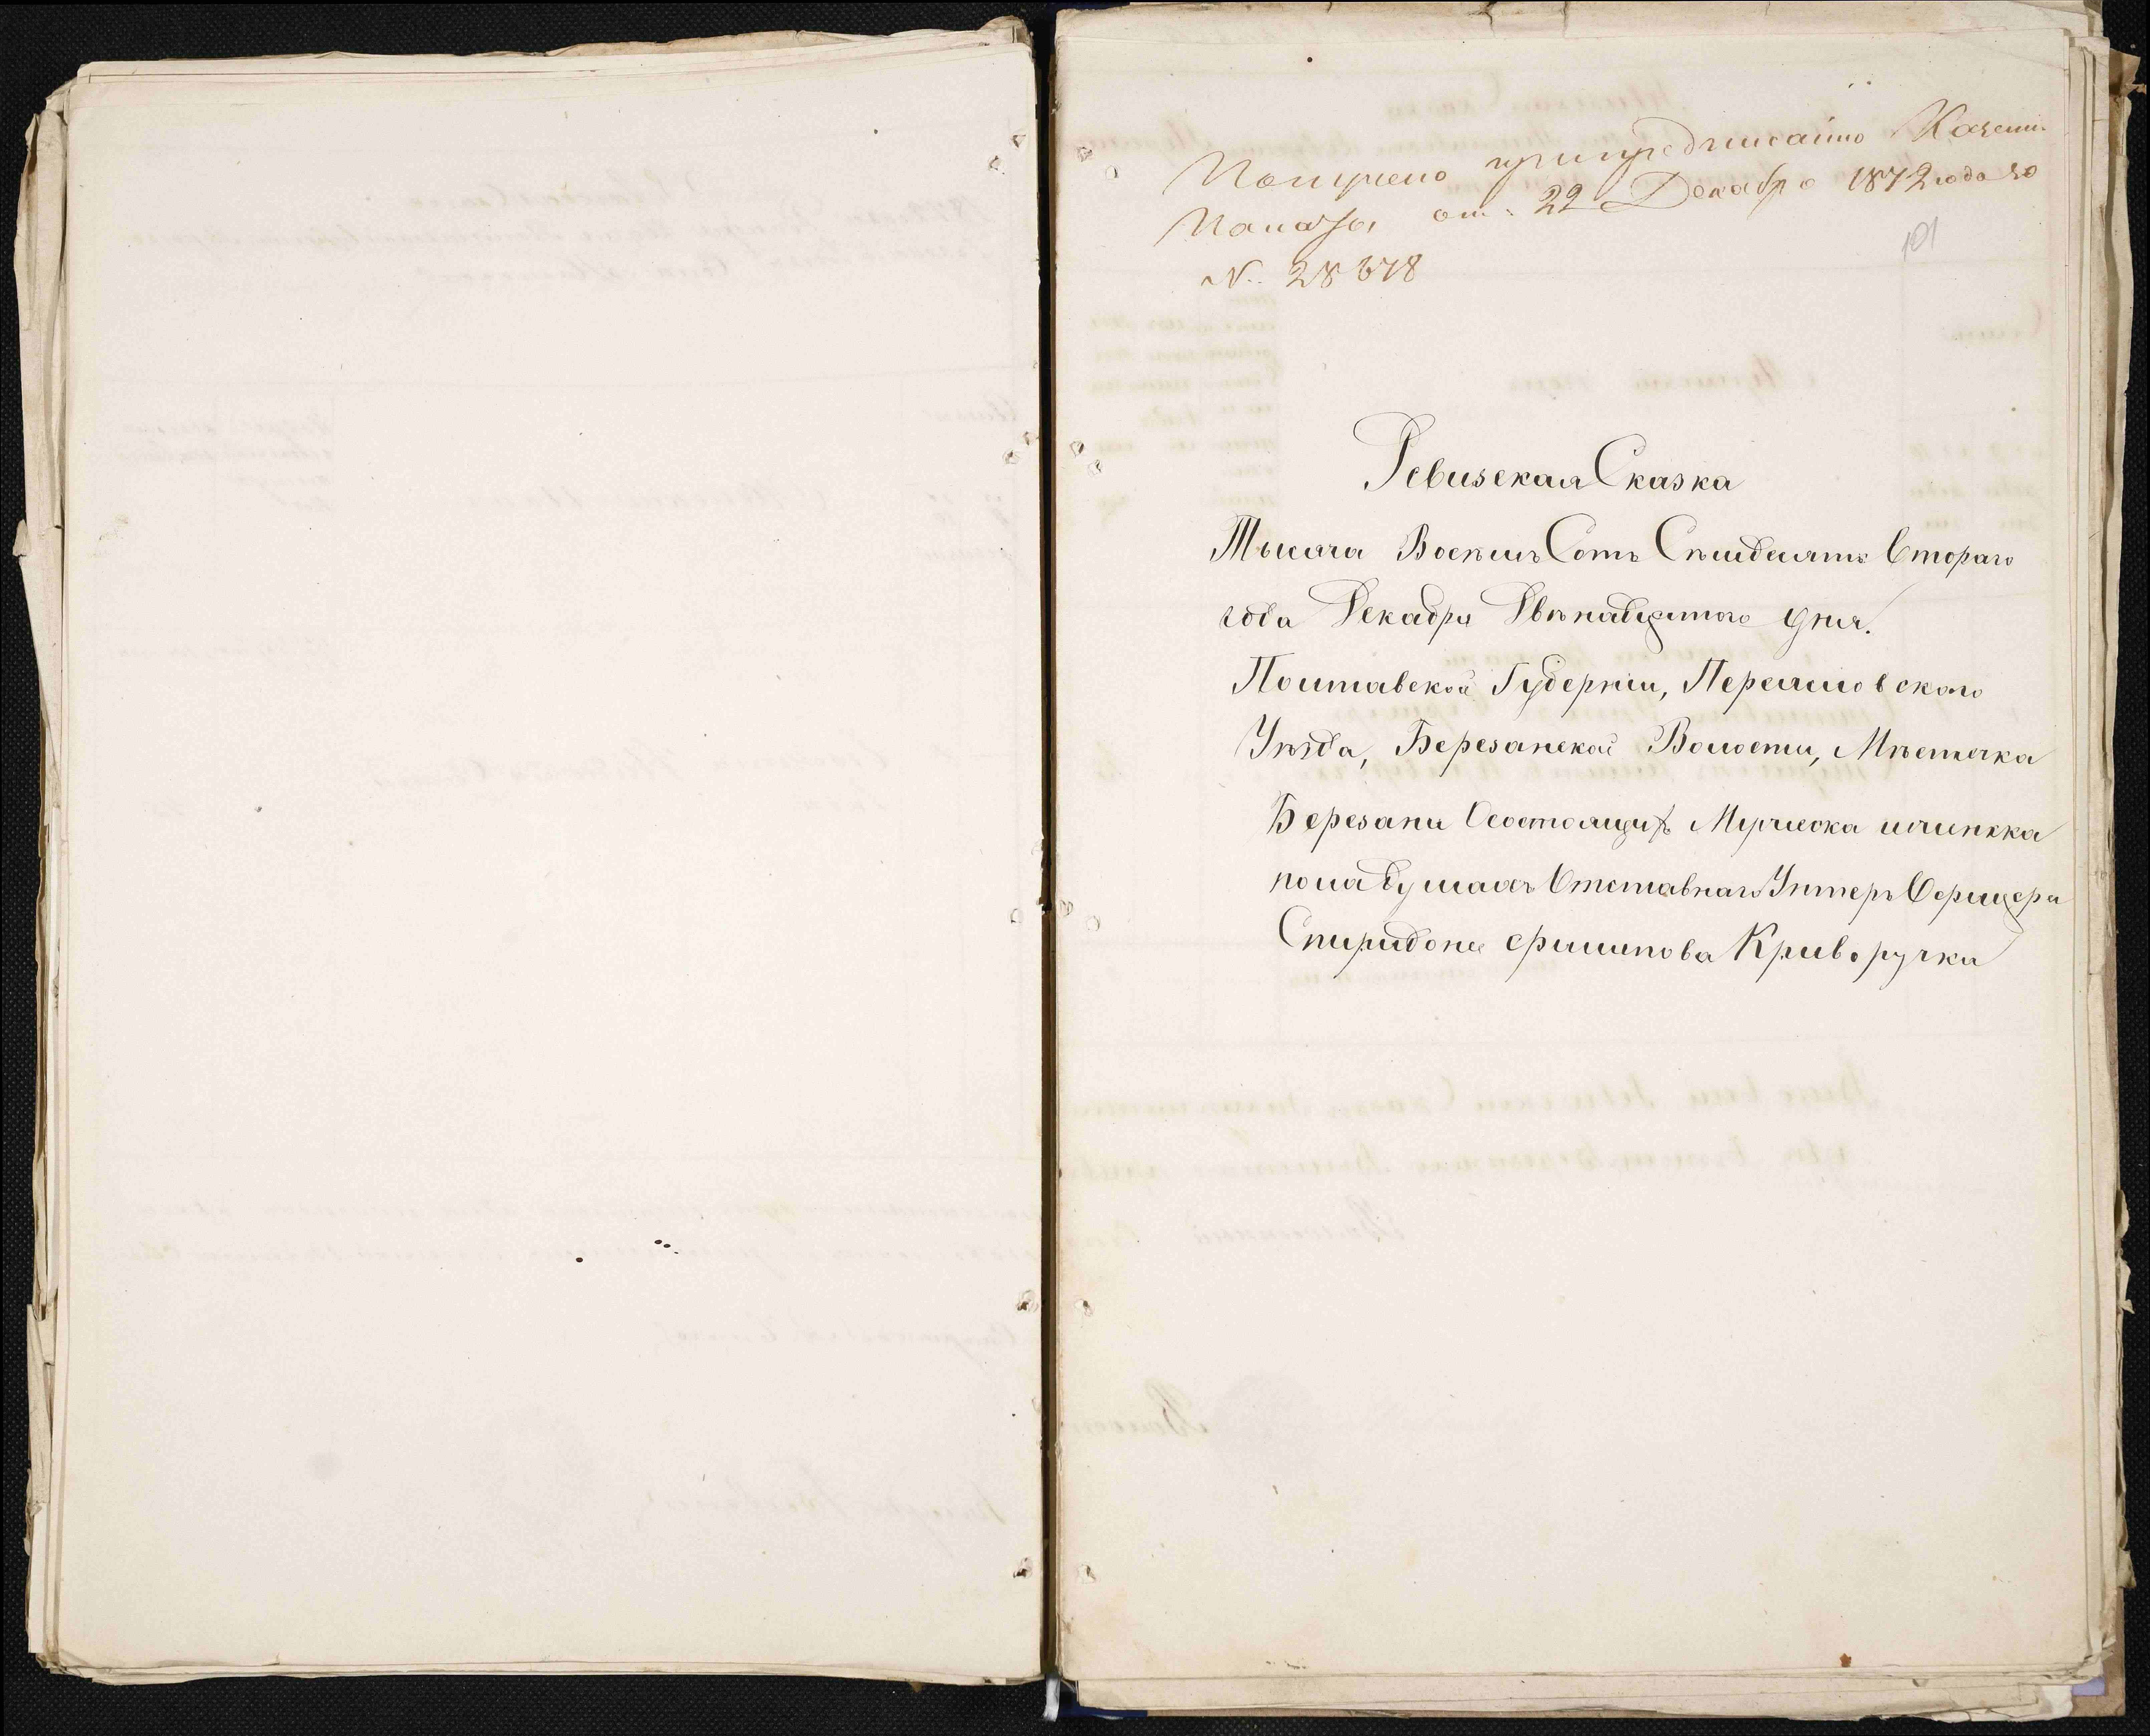 Получено при предписании Казенн.
Палаты от 22 Декабря 1872 года за
№ 28678
101
Ревизская Сказка
Тысяча Восемь Сотъ Сѣмдесятъ Втораго
года Декабря Двѣнадцатого дня.
Полтавской Губерніи, Переяславского
Уѣзда, Березанской Волости, Мѣстечка
Березани Состоящихъ Мужеска и женска
пола душахъ Отставнаго Унтеръ Офицера
Спиридона Филипова Криворучка